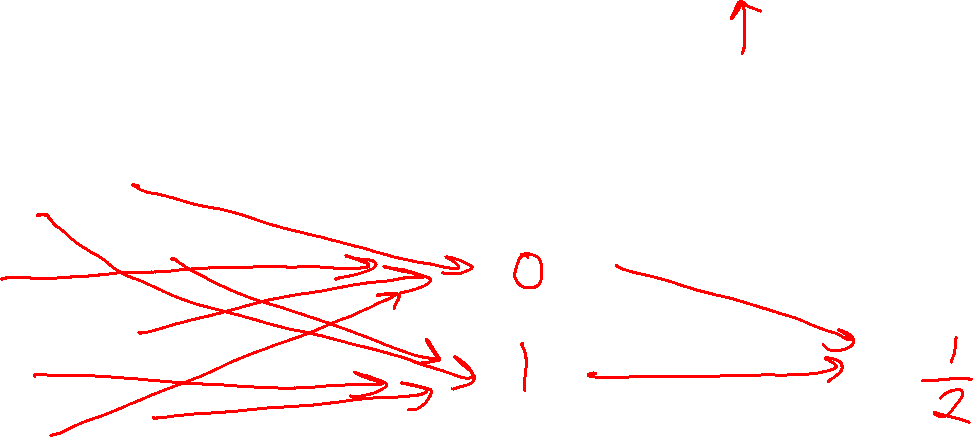 0
1
1/2